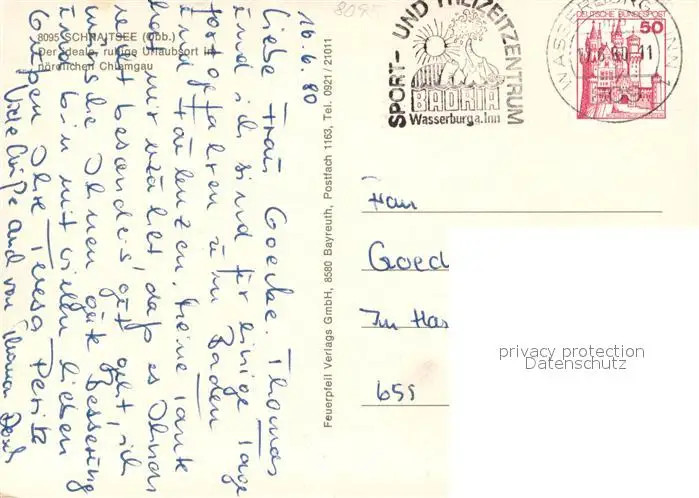 8095 SCHNAITSEE (Obb.)
Der ideale, ruhige Urlaubsort im
nördlichen Chiemgau
16.6.80
Liebe Frau Goecke. Thomas
und ich sind für einige Tage
fortgefahren zum Baden
und faulenzen. Meine Tante
hat mir erzählt, daß es Ihnen
nicht besonders gut geht, ich
wünsche Ihnen gute Besserung
und bin mit vielen lieben
Grüßen Ihre Teresa
Viele Grüße auch von Thomas
Feuerpfeil Verlags GmbH, 8580 Bayreuth, Postfach 1163, Tel. 0921/21011
8095
SPORT- UND FREIZEITZENTRUM
BADRIA
Wasserburg a. Inn
WASSERBURG INN
DEUTSCHE BUNDESPOST
50
Frau
Goed
Im Has
655
privacy protection
Datenschutz